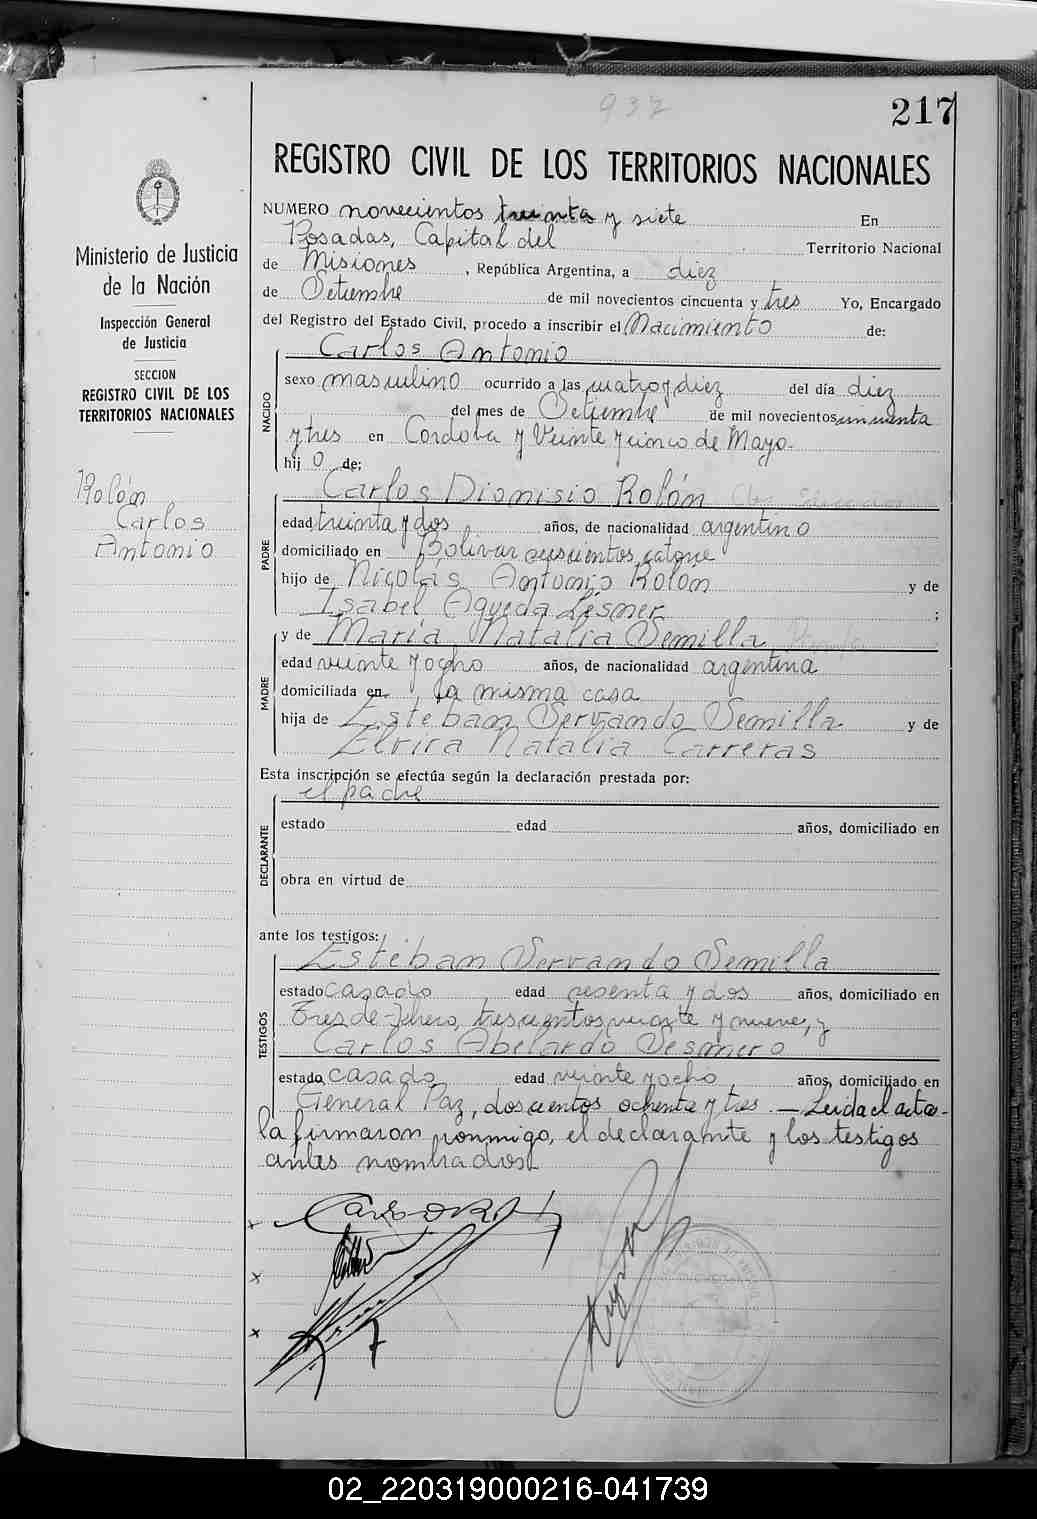 937
217
REGISTRO CIVIL DE LOS TERRITORIOS NACIONALES
Ministerio de Justicia
de la Nación
Inspección General
de Justicia
SECCION
REGISTRO CIVIL DE LOS
TERRITORIOS NACIONALES
Rolón
Carlos
Antonio
NUMERO novecientos treinta y siete En
Posadas, Capital del Territorio Nacional
de Misiones, República Argentina, a diez
de Setiembre de mil novecientos cincuenta y tres Yo, Encargado
del Registro del Estado Civil, procedo a inscribir el Nacimiento de:
NACIDO
Carlos Antonio
sexo masculino ocurrido a las cuatro y diez del día diez
del mes de Setiembre de mil novecientos cincuenta
y tres en Córdoba y Veinte y cinco de Mayo.
hij o de:
PADRE
Carlos Dionisio Rolón
edad treinta y dos años, de nacionalidad argentino
domiciliado en Bolívar seiscientos catorce
hijo de Nicolás Antonio Rolón y de
Isabel Agueda Lesner;
MADRE
y de María Natalia Semilla
edad veinte y ocho años, de nacionalidad argentina
domiciliada en la misma casa
hija de Esteban Servando Semilla y de
Elvira Natalia Carreras
Esta inscripción se efectúa según la declaración prestada por:
DECLARANTE
el padre
estado edad años, domiciliado en
obra en virtud de
ante los testigos:
TESTIGOS
Esteban Servando Semilla
estado casado edad sesenta y dos años, domiciliado en
Tres de Febrero, trescientos veinte y nueve, y
Carlos Abelardo Sesmero
estado casado edad veinte y ocho, años, domiciliado en
General Paz, doscientos ochenta y tres. — Leida el acta
la firmaron conmigo, el declarante y los testigos
antes nombrados.
x
x
x
02_220319000216-041739